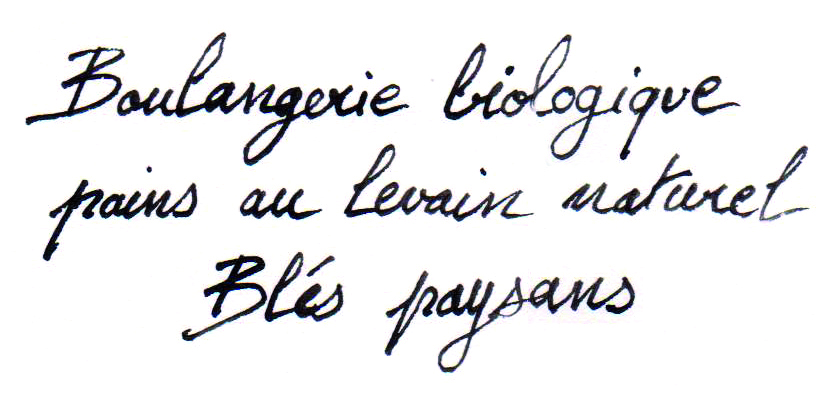 Boulangerie biologique
pains au levain naturel
Blés paysans